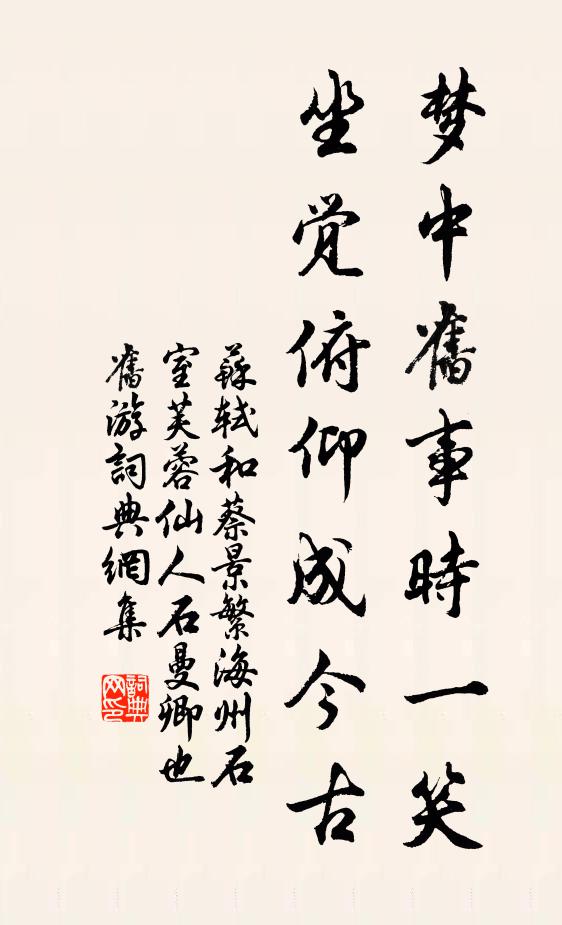 梦中舊事時一笑
坐觉俯仰成今古
蘇轼和蔡景繁海州石
室芙蓉仙人石曼卿也
舊游詞典網集
詞典
网印